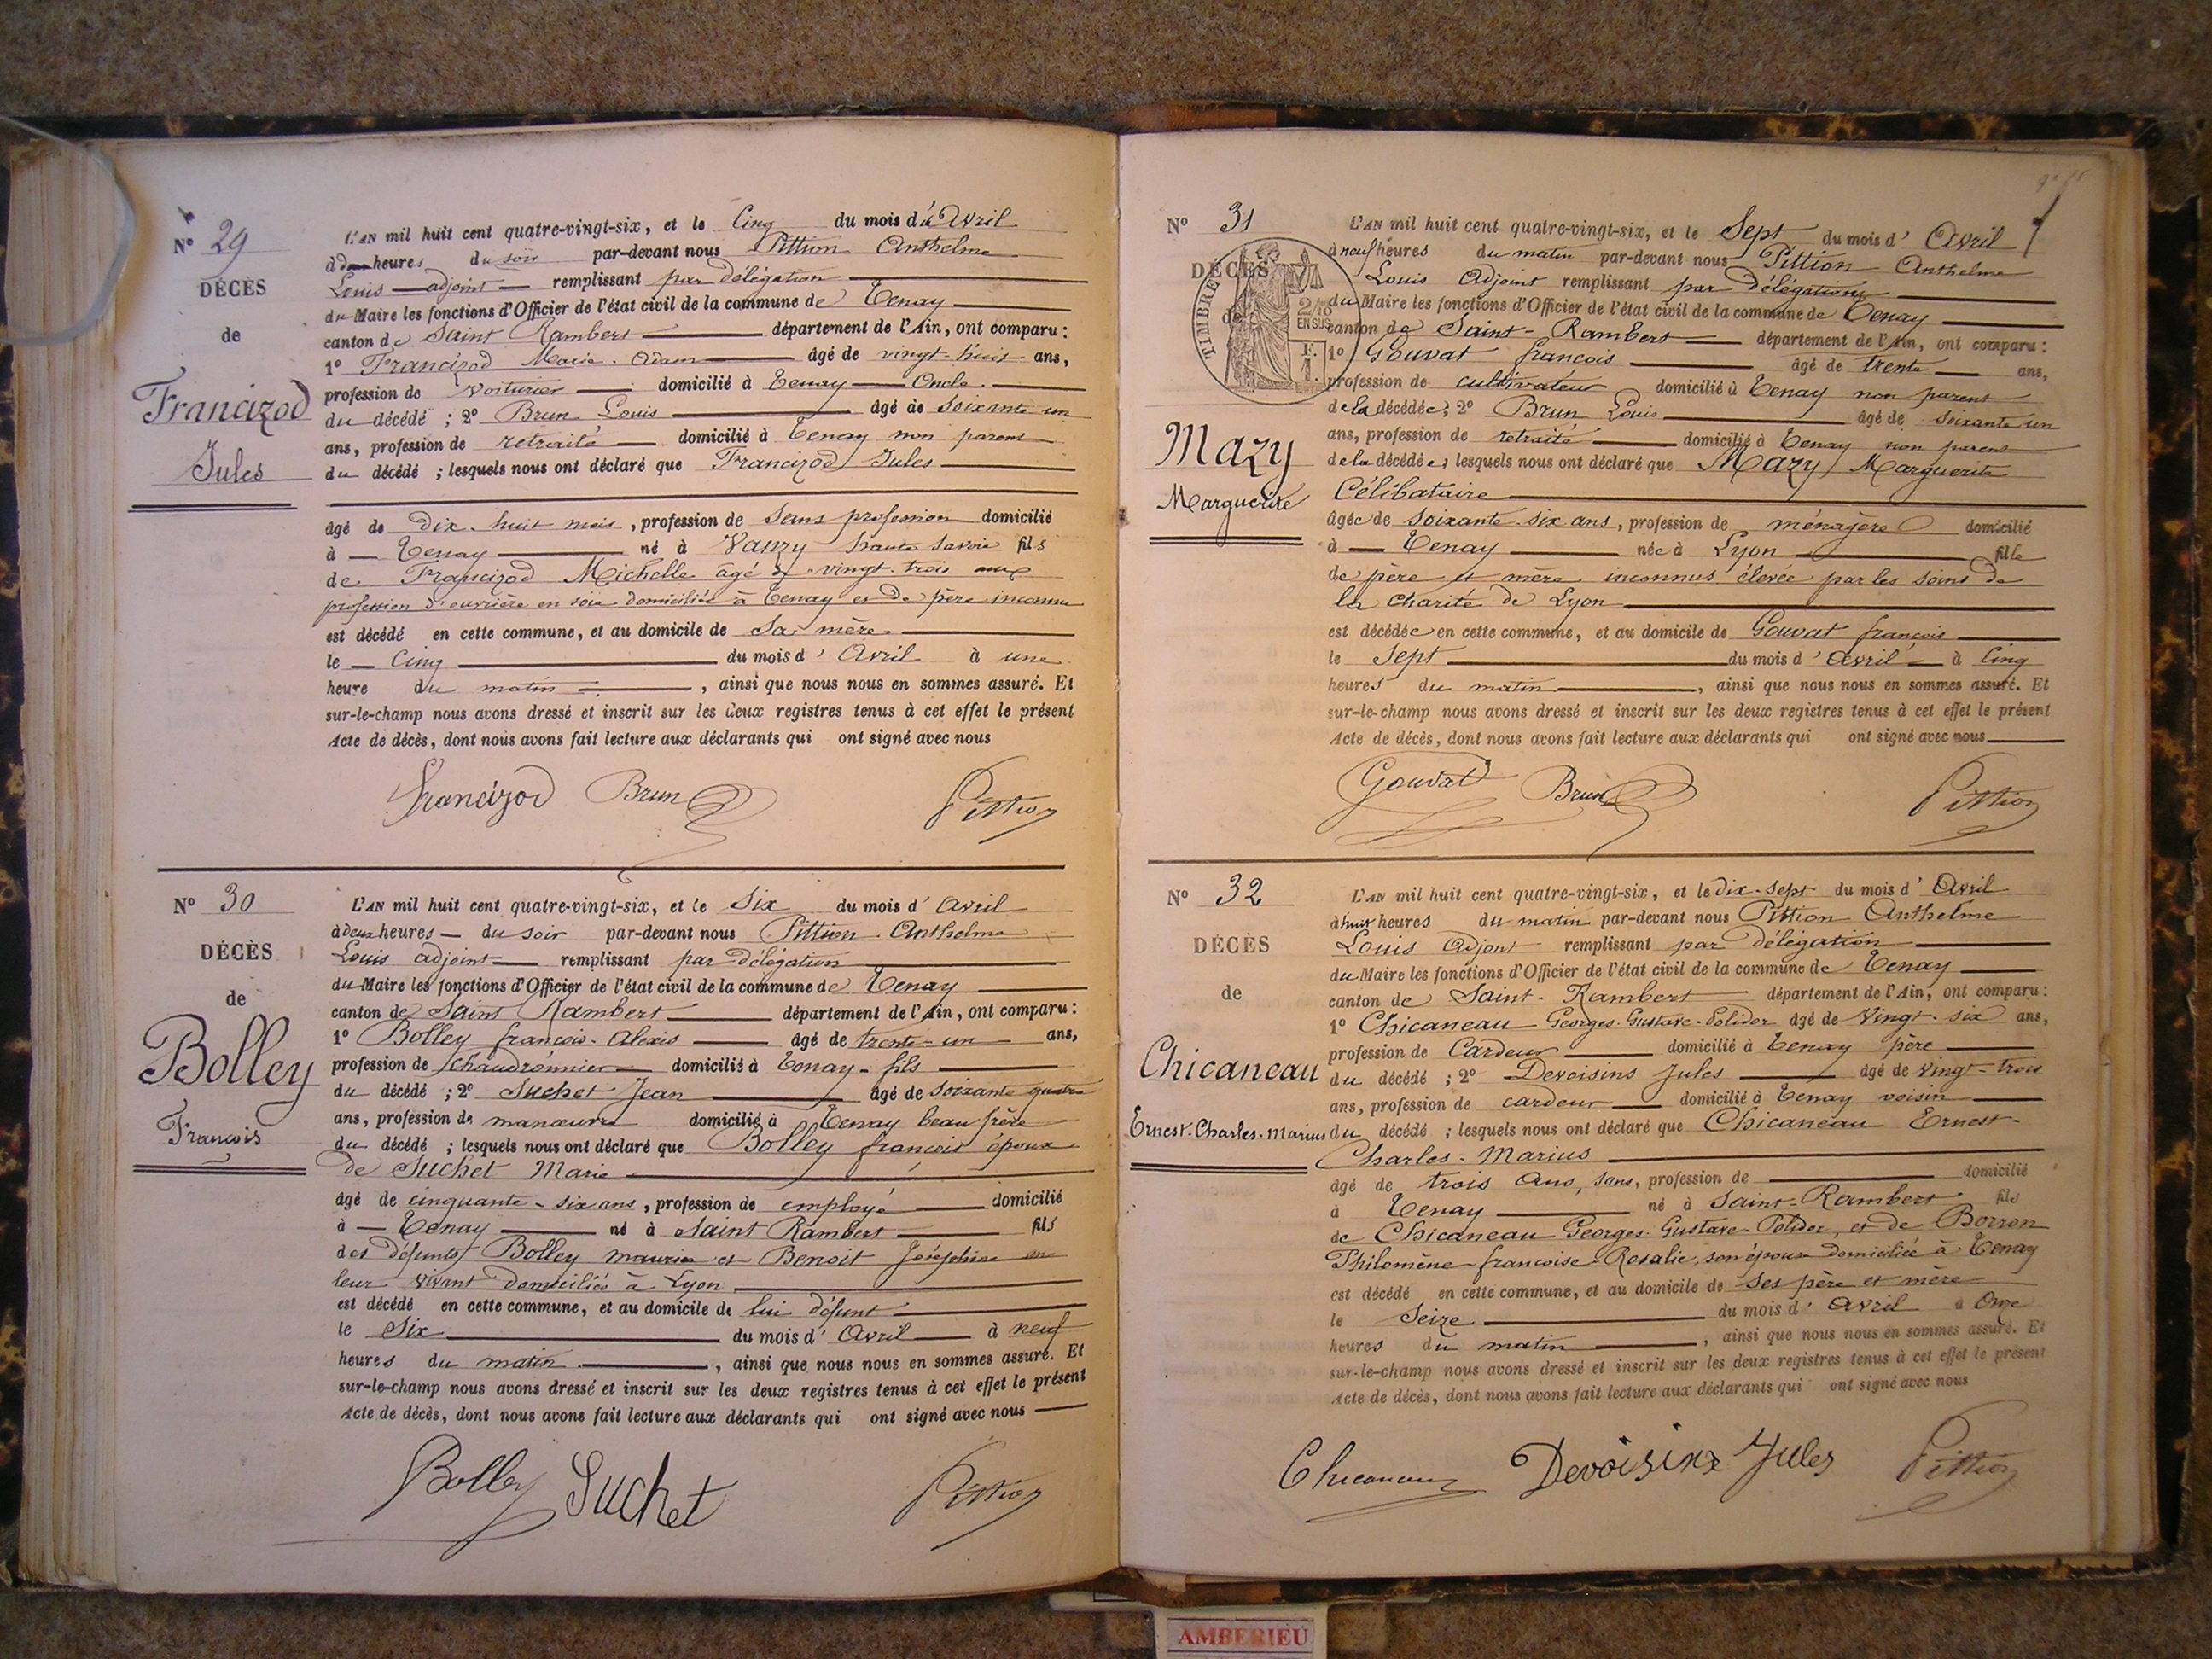 N° 29
DÉCÈS
de
Francizod
Jules
L'AN mil huit cent quatre-vingt-six, et le Cinq du mois d'Avril
à heures du soir par-devant nous Pittion Anthelme
Louis adjoint remplissant par délégation
du Maire les fonctions d'Officier de l'état civil de la commune de Tenay
canton de Saint Rambert département de l'Ain, ont comparu :
1° Francizod Marie Adam âgé de vingt-huit ans,
profession de voiturier domicilié à Tenay Oncle
du décédé ; 2° Brun Louis âgé de soixante un
ans, profession de retraité domicilié à Tenay non parent
du décédé ; lesquels nous ont déclaré que Francizod Jules
âgé de dix-huit mois, profession de sans profession domicilié
à Tenay né à Vanzy haute Savoie fils
de Francizod Michelle âgé de vingt-trois ans
profession d'ouvrière en soie domiciliée à Tenay et de père inconnu
est décédé en cette commune, et au domicile de Sa mère
le Cinq du mois d'Avril à une
heure du matin, ainsi que nous nous en sommes assuré. Et
sur-le-champ nous avons dressé et inscrit sur les deux registres tenus à cet effet le présent
Acte de décès, dont nous avons fait lecture aux déclarants qui ont signé avec nous
Francizod Brun Pittion
N° 30
DÉCÈS
de
Bolley
François
L'AN mil huit cent quatre-vingt-six, et le Six du mois d'Avril
à deux heures du soir par-devant nous Pittion Anthelme
Louis adjoint remplissant par délégation
du Maire les fonctions d'Officier de l'état civil de la commune de Tenay
canton de Saint Rambert département de l'Ain, ont comparu :
1° Bolley françois-Alexis âgé de trente-un ans,
profession de chaudronnier domicilié à Tenay - fils
du décédé ; 2° Suchet Jean âgé de soixante quatre
ans, profession de manœuvre domicilié à Tenay beau frère
du décédé ; lesquels nous ont déclaré que Bolley françois époux
de Suchet Marie
âgé de cinquante-six ans, profession de employé domicilié
à Tenay né à Saint Rambert fils
des défunts Bolley maurice et Benoit Joséphine en
leur vivant domiciliés à Lyon
est décédé en cette commune, et au domicile de lui défunt
le Six du mois d'Avril à neuf
heures du matin, ainsi que nous nous en sommes assuré. Et
sur-le-champ nous avons dressé et inscrit sur les deux registres tenus à cet effet le présent
Acte de décès, dont nous avons fait lecture aux déclarants qui ont signé avec nous
Bolley Suchet Pittion
N° 31
DÉCÈS
de
TIMBRE
2/10
EN SUS
Mazy
Marguerite
L'AN mil huit cent quatre-vingt-six, et le Sept du mois d'Avril
à neuf heures du matin par-devant nous Pittion Anthelme
Louis Adjoint remplissant par délégation
du Maire les fonctions d'Officier de l'état civil de la commune de Tenay
canton de Saint-Rambert département de l'Ain, ont comparu :
1° Gouvat françois âgé de trente ans,
profession de cultivateur domicilié à Tenay non parent
de la décédée ; 2° Brun Louis âgé de soixante un
ans, profession de retraité domicilié à Tenay non parent
de la décédée ; lesquels nous ont déclaré que Mazy Marguerite
Célibataire
âgée de soixante-six ans, profession de ménagère domicilié
à Tenay née à Lyon fille
de père et mère inconnus élevée par les soins de
la charité de Lyon
est décédée en cette commune, et au domicile de Gouvat françois
le Sept du mois d'Avril à Cinq
heures du matin, ainsi que nous nous en sommes assuré. Et
sur-le-champ nous avons dressé et inscrit sur les deux registres tenus à cet effet le présent
Acte de décès, dont nous avons fait lecture aux déclarants qui ont signé avec nous
Gouvat Brun Pittion
N° 32
DÉCÈS
de
Chicaneau
Ernest-Charles-Marius
L'AN mil huit cent quatre-vingt-six, et le dix-sept du mois d'Avril
à huit heures du matin par-devant nous Pittion Anthelme
Louis Adjoint remplissant par délégation
du Maire les fonctions d'Officier de l'état civil de la commune de Tenay
canton de Saint-Rambert département de l'Ain, ont comparu :
1° Chicaneau Georges-Gustave-Polidor âgé de Vingt-six ans,
profession de Cardeur domicilié à Tenay père
du décédé ; 2° Devoisins Jules âgé de vingt-trois
ans, profession de cardeur domicilié à Tenay voisin
du décédé ; lesquels nous ont déclaré que Chicaneau Ernest-
Charles-Marius
âgé de trois ans, sans, profession de domicilié
à Tenay né à Saint-Rambert fils
de Chicaneau Georges-Gustave-Polidor, et de Borron
Philomène-françoise-Rosalie, son épouse domiciliée à Tenay
est décédé en cette commune, et au domicile de ses père et mère
le Seize du mois d'Avril à Onze
heures du matin, ainsi que nous nous en sommes assuré. Et
sur-le-champ nous avons dressé et inscrit sur les deux registres tenus à cet effet le présent
Acte de décès, dont nous avons fait lecture aux déclarants qui ont signé avec nous
Chicaneau Devoisins Jules Pittion
AMBERIEU